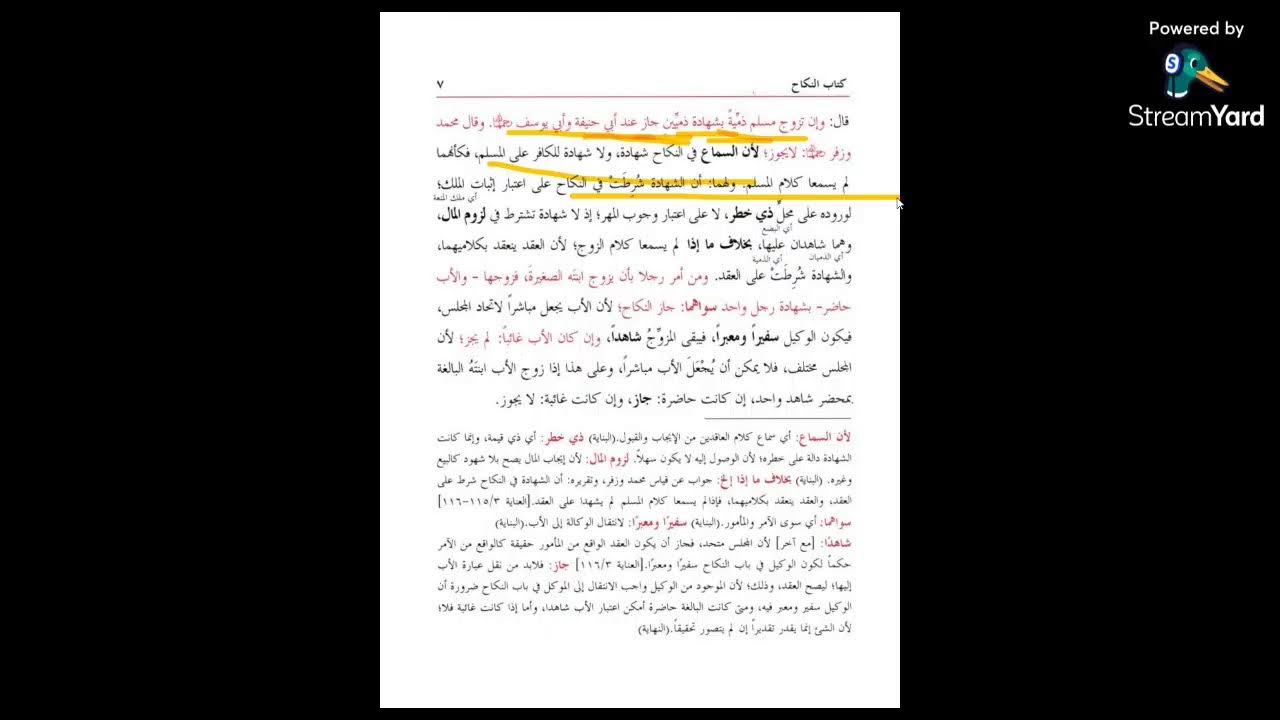 Powered by
StreamYard
كتاب النكاح
٧
قال: وإن تزوج مسلم ذمِّيةً بشهادة ذميَّينِ جاز عند أبي حنيفة وأبي يوسف رحمهما الله. وقال محمد
وزفر رحمهما الله: لايجوز؛ لأن السماع في النكاح شهادة، ولا شهادة للكافر على المسلم، فكأنهما
لم يسمعا كلام المسلم. ولهما: أن الشهادة شُرِطَتْ في النكاح على اعتبار إثبات الملك؛
أي ملك المتعة
لوروده على محلٍّ ذي خطر، لا على اعتبار وجوب المهر؛ إذ لا شهادة تشترط في لزوم المال،
أي البضع
وهما شاهدان عليها، بخلاف ما إذا لم يسمعا كلام الزوج؛ لأن العقد ينعقد بكلاميهما،
أي الذميان
أي الذمية
والشهادة شُرِطَتْ على العقد. ومن أمر رجلا بأن يزوج ابنتَه الصغيرةَ، فزوجها - والأب
حاضر- بشهادة رجل واحد سواهما: جاز النكاح؛ لأن الأب يجعل مباشراً لاتحاد المجلس،
فيكون الوكيل سفيراً ومعبراً، فيبقى المزوِّجُ شاهداً، وإن كان الأب غائباً: لم يجز؛ لأن
المجلس مختلف، فلا يمكن أن يُجْعَلَ الأب مباشراً، وعلى هذا إذا زوج الأب ابنتَهُ البالغة
بمحضر شاهد واحد، إن كانت حاضرة: جاز، وإن كانت غائبة: لا يجوز.
لأن السماع: أي سماع كلام العاقدين من الإيجاب والقبول.(البناية) ذي خطر: أي ذي قيمة، وإنما كانت
الشهادة دالة على خطره؛ لأن الوصول إليه لا يكون سهلاً. لزوم المال: لأن إيجاب المال يصح بلا شهود كالبيع
وغيره. (البناية) بخلاف ما إذا إلخ: جواب عن قياس محمد وزفر، وتقريره: أن الشهادة في النكاح شرط على
العقد، والعقد ينعقد بكلاميهما، فإذالم يسمعا كلام المسلم لم يشهدا على العقد.[العناية ١١٥/٣-١١٦]
سواهما: أي سوى الآمر والمأمور.(البناية) سفيرًا ومعبرًا: لانتقال الوكالة إلى الأب.(البناية)
شاهدًا: [مع آخر] لأن المجلس متحد، فجاز أن يكون العقد الواقع من المأمور حقيقة كالواقع من الآمر
حكماً لكون الوكيل في باب النكاح سفيرًا ومعبرًا.[العناية ١١٦/٣] جاز: فلابد من نقل عبارة الأب
إليها؛ ليصح العقد، وذلك؛ لأن الموجود من الوكيل واجب الانتقال إلى الموكل في باب النكاح ضرورة أن
الوكيل سفير ومعبر فيه، ومتى كانت البالغة حاضرة أمكن اعتبار الأب شاهدا، وأما إذا كانت غائبة فلا؛
لأن الشئ إنما يقدر تقديراً إن لم يتصور تحقيقاً.(النهاية)